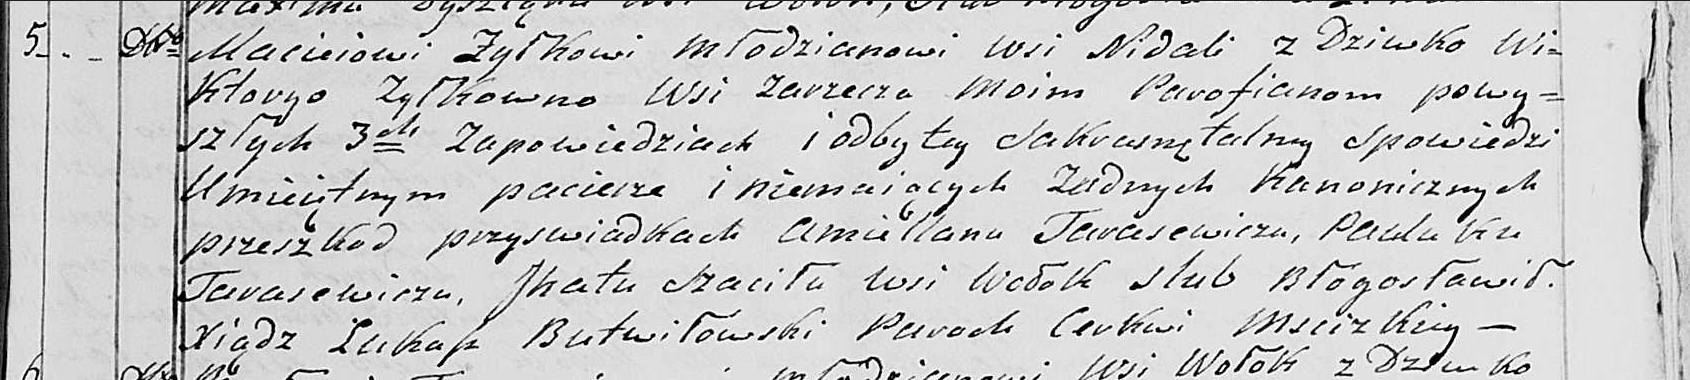 5. Dtto Macieiowi Zyłkowi młodzianowi wsi Nidali z Dziwko Wi=
ktoryo Zyłkowno wsi Zarzecza moim Parofianom powy=
szłych 3ch Zapowiedziach i odbytey Sakramętalny Spowiedzi
Umieiętnym pacierze i niemaiących Żadnych Kanonicznych
przeszkod przyswiadkach Amiellana Tarasewicza, Pauluka
Tarasewicza, Jhatu Szaciła wsi Wołok slub Błogosławił.
Xiądz Łukasz Butwiłowski Paroch Cerkwi Mscizkiey —
młodzianowi wsi Wołok z Dziwko